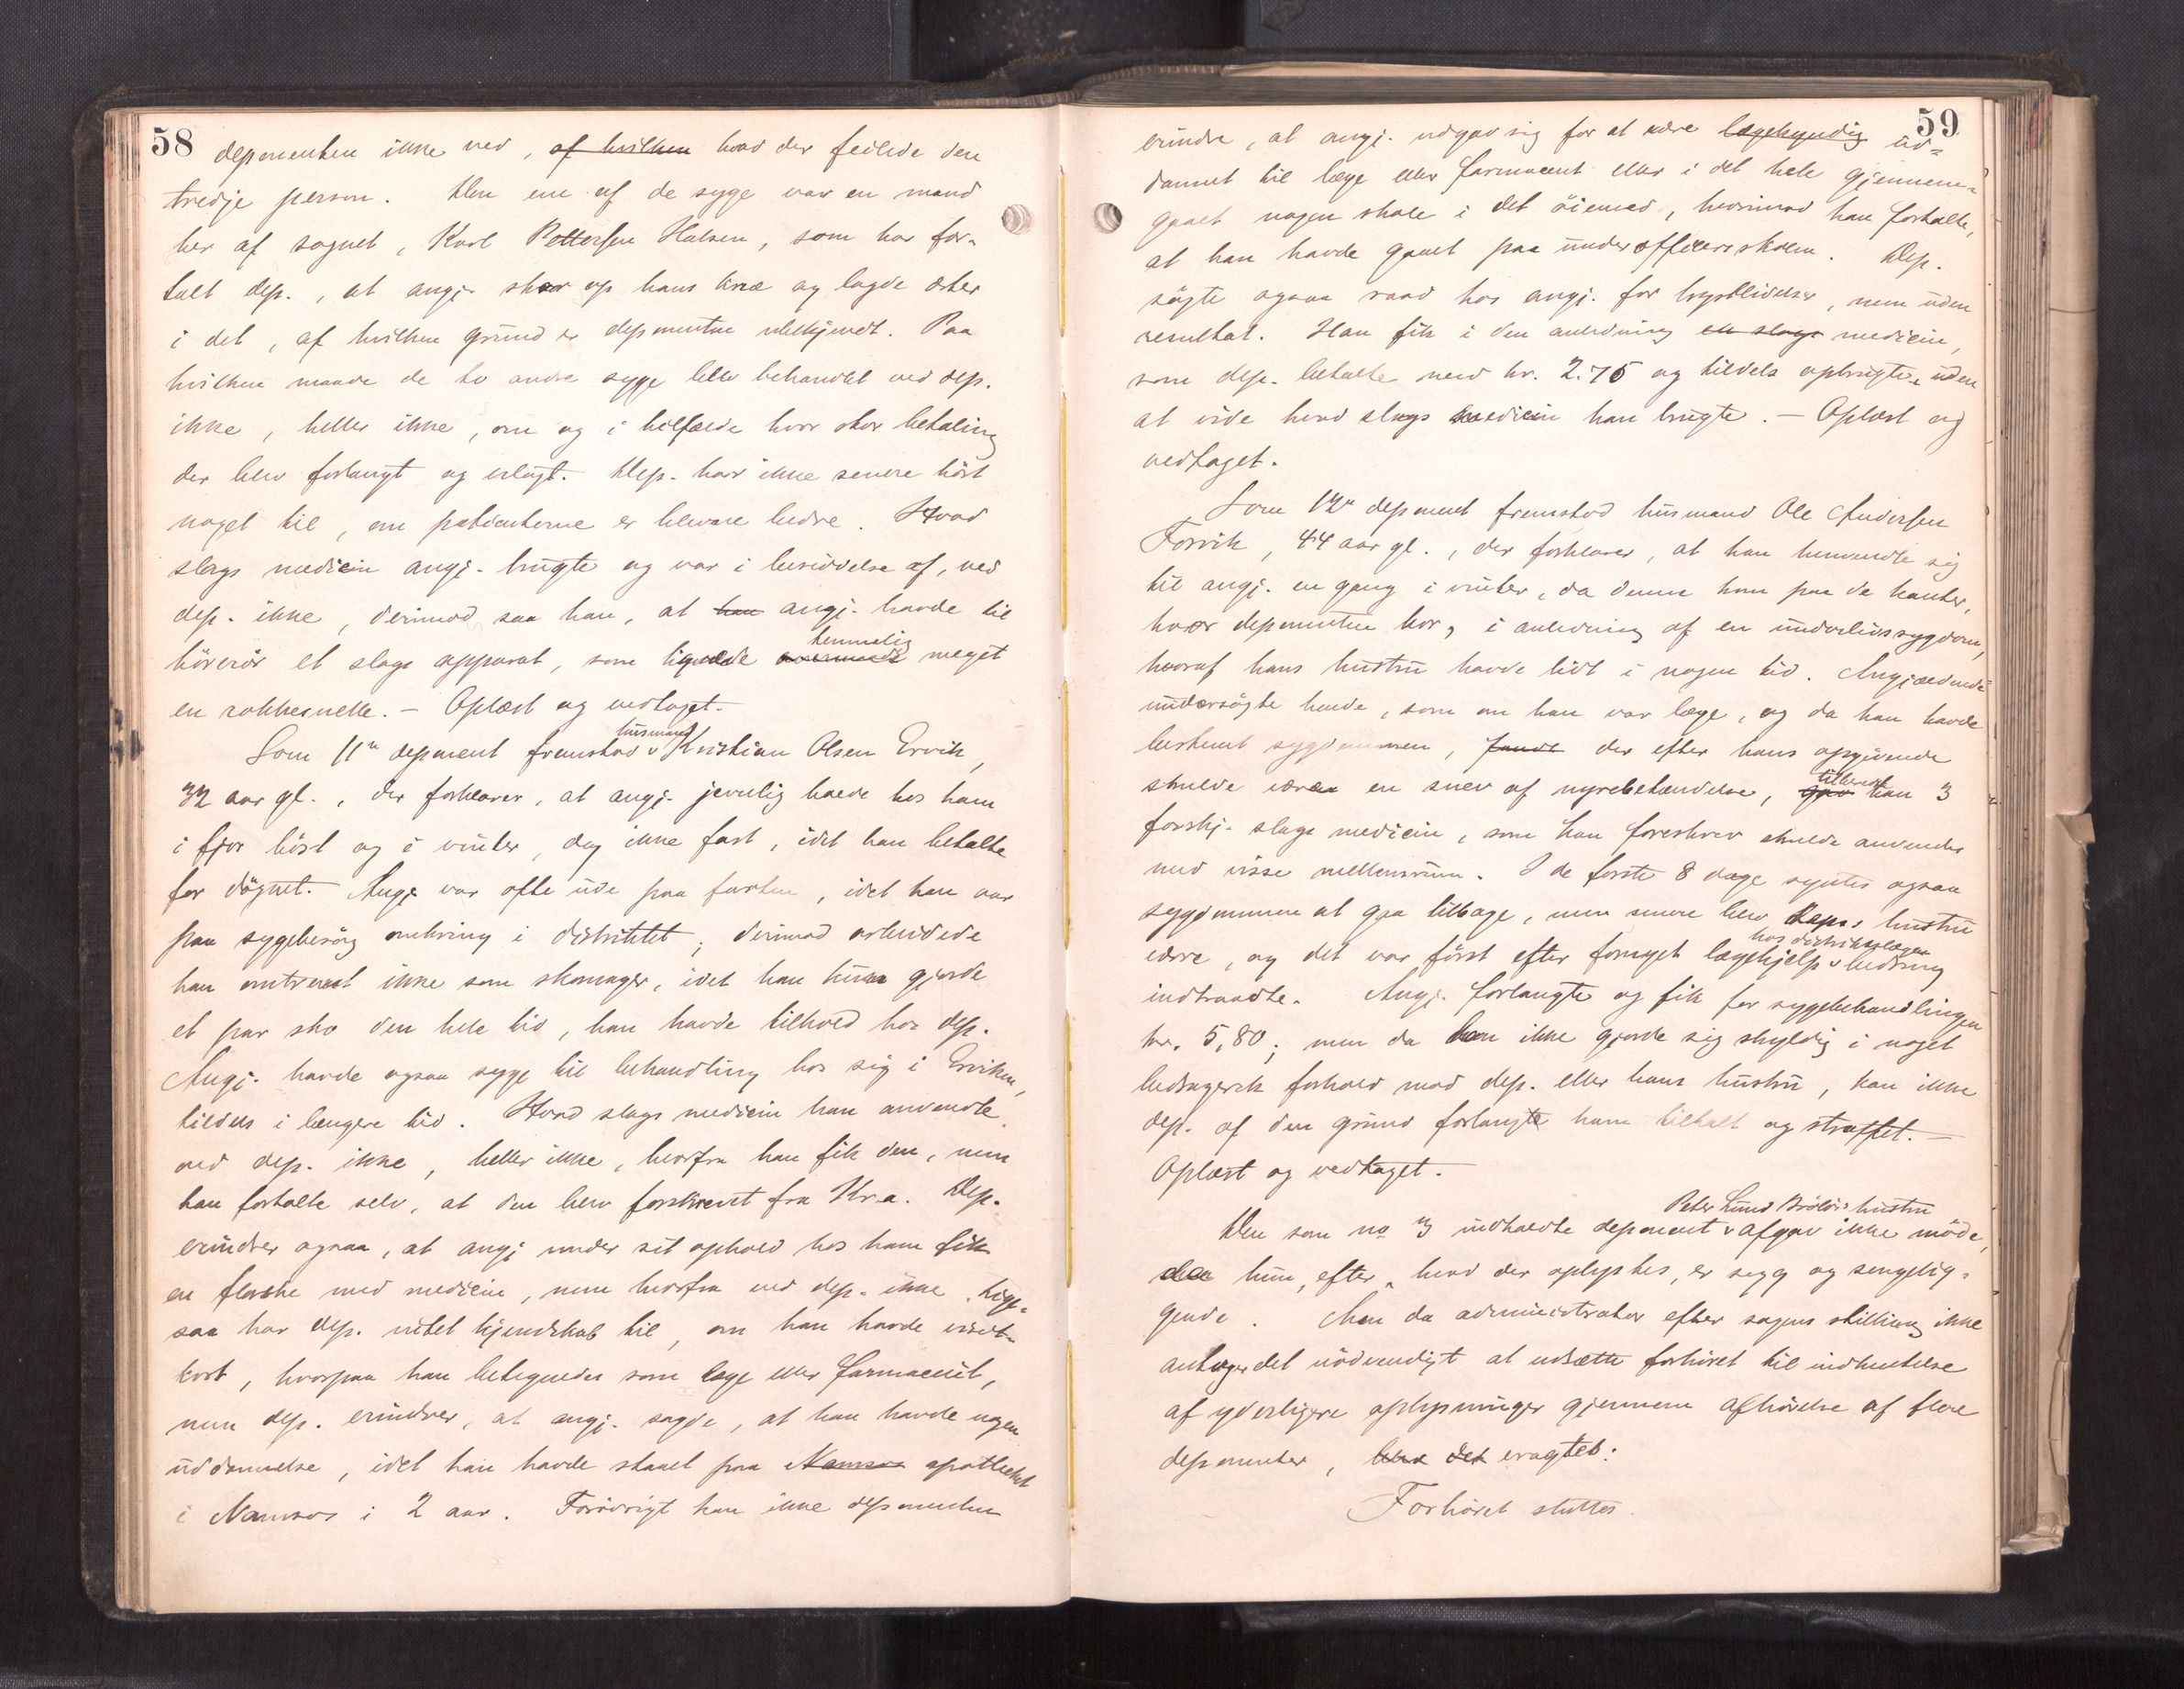 58
deponenten ikke ved, af hvilken hvad der feilede den
tredje person. Den ene af de syge var en mand
her af sognet, Karl Pettersen Halsen, som har for-
talt dep., at angj. skar op hans knæ og lagde æter
i det, af hvilken grund er deponenten ubekjendt. Paa
hvilken maade de to andre syge blev behandlet ved dep.
ikke, heller ikke, om og i tilfælde hvor stor betaling
der blev forlangt og erlagt. Dep. har ikke senere hört
noget til, om patienterne er blevne bedre. Hvad
slags medicin angj. brugte og var i besiddelse af, ved
dep. ikke, derimod saa han, at han angj. havde til
hörerör et slags apparat, som lignede temmelig meget
en rokkesnelle. – Oplæst og vedtaget.
Som 11te deponent fremstod husmand Kristian Olsen Ervik,
32 aar gl., der forklarer, at angj. jevnlig boede hos ham
i fjor höst og i vinter, dog ikke fast, idet han betalte
for dögnet. Angj. var ofte ude paa farten, idet han var
paa sygebesög omkring i distriktet; derimod arbeidede
han omtrent ikke som skomager, idet han kun gjorde
et par sko den hele tid, han havde tilhold hos dep.
Angj. havde ogsaa syge til behandling hos sig i Erviken,
tildels i længere tid. Hvad slags medicin han anvendte
ved dep. ikke, heller ikke, hvorfra han fik den, men
han fortalte selv, at den blev forskrevet fra Kr.a. Dep.
erindrer ogsaa, at angj. under sit ophold hos ham fik
en flaske med medicin, men hvorfra ved dep. ikke. Lige-
saa har dep. intet kjendskab til, om han havde visit-
kort, hvorpaa han betegnedes som læge eller farmaceut,
men dep. erindrer, at angj. sagde, at han havde nogen
uddannelse, idet han havde staaet paa Namsos apotheket
i Namsos i 2 aar. Forövrigt kan ikke deponenten
59
erindre, at angj. udgav sig for at være lægekyndig ud-
dannet til læge eller farmaceut eller i det hele gjennem-
gaaet nogen skole i det öiemed, hvorimod han fortalte,
at han havde gaaet paa underofficersskolen. Dep.
sögte ogsaa raad hos angj. for brystlidelse, men uden
resultat. Han fik i den anledning en slags medicin,
som dep. betalte med kr. 2.75 og tildels opbrugte, uden
at vide hvad slags medicin han brugte. – Oplæst og
vedtaget.
Som 12te deponent fremstod husmand Ole Andersen
Forvik, 44 aar gl., der forklarer, at han henvendte sig
til angj. en gang i vinter, da denne kom paa de kanter,
hvor deponenten bor, i anledning af en underlivssygdom,
hvoraf hans hustru havde lidt i nogen tid. Angjældende
undersögte hende, som om han var læge, og da han havde
bestemt sygdommen, fandt der efter hans opgivende
skulde være en snev af nyrebetændelse, gav tilbød han 3
forskj. slags medicin, som han foreskrev skulde anvendes
med visse mellemrum. I de förste 8 dage syntes ogsaa
sygdommen at gaa tilbage, men senere blev deps hustru
værre, og det var först efter fornyet lægehjelp hos distriktslægen bedring
indtraadte. Angj. forlangte og fik for sygebehandlingen
kr. 5,80; men da han ikke gjorde sig skyldig i noget
bedragersk forhold mod dep. eller hans hustru, kan ikke
dep. af den grund forlange ham tiltalt og straffet. –
Oplæst og vedtaget.
Den som no 3 indkaldte deponent Peter Lund hustru afgav ikke möde,
da hun, efter hvad der oplystes, er syg og sengelig-
gende. Men da administrator efter sagens stilling ikke
antager det nödvendigt at udsætte forhöret til indhentelse
af yderligere oplysninger gjennem afhörelse af flere
deponenter, blev det eragtet:
Forhöret sluttes.